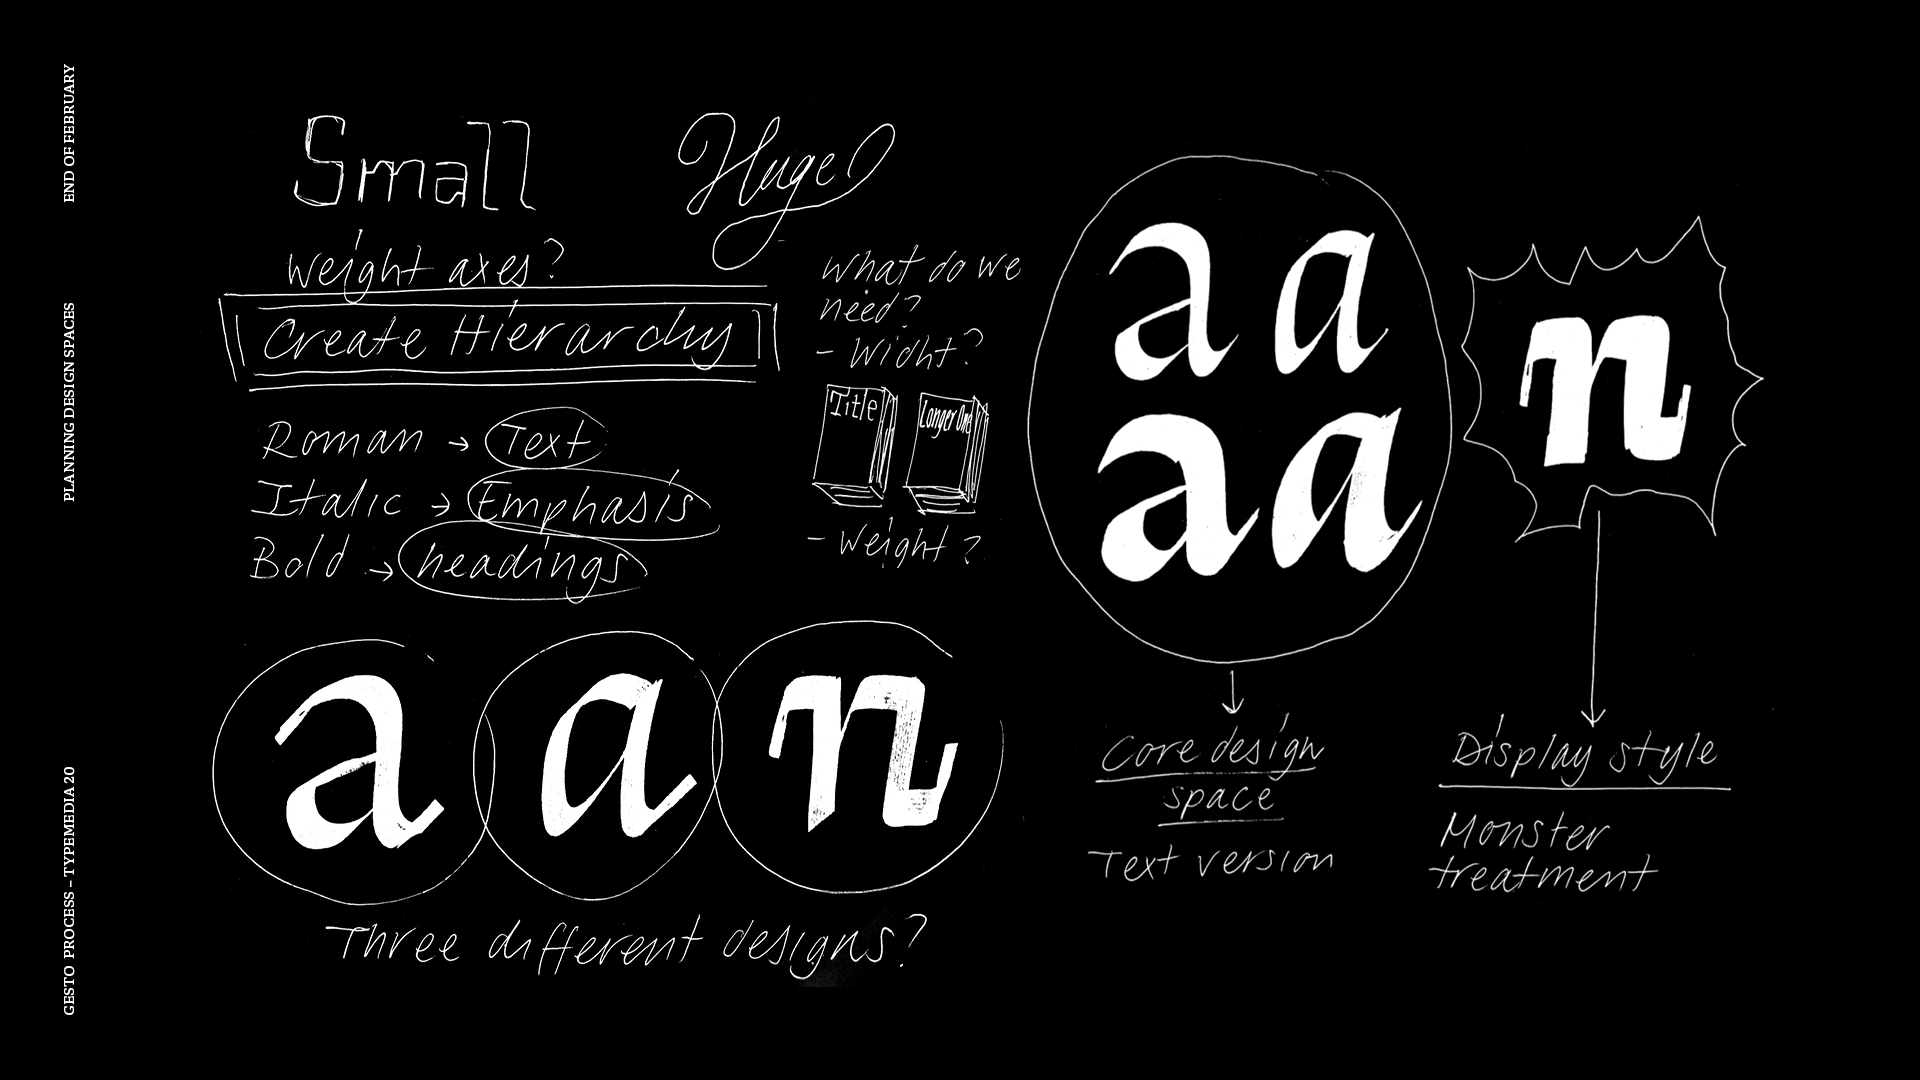 END OF FEBRUARY
PLANNING DESIGN SPACES
GESTO PROCESS – TYPEMEDIA 20
Small
Huge
Weight axes?
Create Hierarchy
Roman → Text
Italic → Emphasis
Bold → headings
What do we
need?
- Widht?
Title
Longer One
- Weight?
a a n
Three different designs?
a a
a a
Core design
space
Text version
n
Display style
Monster
treatment